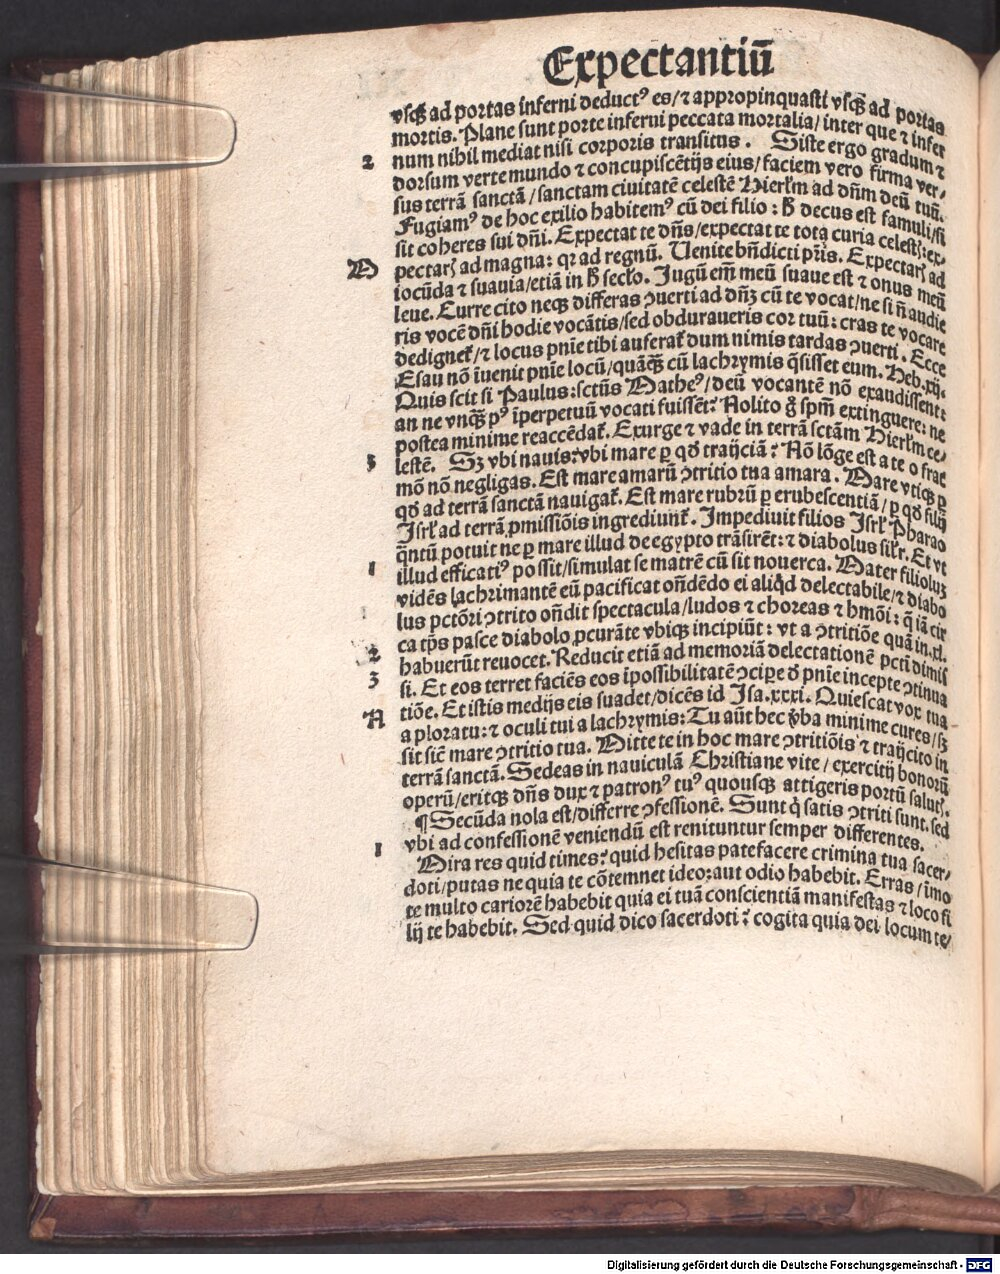 Expectantiū
vsqꝫ ad portas inferni deductꝰ es/ ⁊ appropinquasti vsqꝫ ad portas
mortis. Plane sunt porte inferni peccata mortalia/ inter que ⁊ infer
2 num nihil mediat nisi corporis transitus. Siste ergo gradum ⁊
dorsum verte mundo ⁊ concupiscētijs eius/ faciem vero firma ver⸗
sus terrā sanctā/ sanctam ciuitatē celestē Hierłm ad dn̄m deū tuū.
Fugiamꝰ de hoc exilio habitemꝰ cū dei filio: ħ decus est famuli/ si
sit coheres sui dn̄i. Expectat te dn̄s/ expectat te tota curia celestꝭ: ex⸗
D pectarꝭ ad magna: qꝛ ad regnū. Uenite bn̄dicti pr̄is. Expectarꝭ ad
iocūda ⁊ suauia/ etiā in ħ secło. Jugū em̄ meū suaue est ⁊ onus meū
leue. Curre cito neqꝫ differas ꝯuerti ad dn̄ꝫ cū te vocat/ ne si n̄ audie
ris vocē dn̄i hodie vocātis/ sed obduraueris cor tuū: cras te vocare
dedignet̄/ ⁊ locus pn̄ie tibi auferat̄ dum nimis tardas ꝯuerti. Ecce
Esau nō īuenit pn̄ie locū/ quāqꝫ cū lachrymis q̄sisset eum. Heb.xij.
Quis scit si Paulus: sctūs Matheꝰ/ deū vocantē nō exaudissent:
an ne vnqꝫ pꝰ īperpetuū vocati fuissēt? Nolito g̊ spm̄ extinguere: ne
postea minime reaccēdat̄. Exurge ⁊ vade in terrā sctām Hierłm ce⸗
3 lestē. Sꝫ vbi nauis? vbi mare ꝑ qđ traijciā? Nō lōge est a te o frac
mō nō negligas. Est mare amarū ꝯtritio tua amara. Mare vtiqꝫ ꝑ
qđ ad terrā sanctā nauigat̄. Est mare rubrū ꝑ erubescentiā/ ꝑ qđ filij
Jsrł ad terrā ꝓmissiōis ingrediunt̄. Impediuit filios Jsrł Pharao
q̄ntū potuit ne ꝑ mare illud de egypto trāsirēt: ⁊ diabolus sił'r. Et vt
1 illud efficatiꝰ possit/ simulat se matrē cū sit nouerca. Mater filioluꝫ
vidēs lachrimantē eū pacificat ondēdo ei aliqd delectabile/ ⁊ diabo
lus pctōri ꝯtrito ondit spectacula/ ludos ⁊ choreas ⁊ hmōi: q̄ iā cir
ca tp̄s pasce diabolo ꝓcurāte vbiqꝫ incipiūt: vt a ꝯtritiōe quā in.xl.
2 habuerūt reuocet. Reducit etiā ad memoriā delectationē pcti dimis
3 si. Et eos terret faciēs eos īpossibilitatē ꝯcipe đ pn̄ie incepte ꝯtinua
tiōe. Et istis medijs eis suadet/ dicēs id Jsa.xxxi. Quiescat vox tua
A a ploratu: ⁊ oculi tui a lachrymis: Tu aūt hec ꝟba minime cures/ sꝫ
sit sic̄ mare ꝯtritio tua. Mitte te in hoc mare ꝯtritiōis ⁊ traijcito in
terrā sanctā. Sedeas in nauiculā Christiane vite/ exercitij bonorū
operū/ eritqꝫ dn̄s dux ⁊ patronꝰ tuꝰ quousqꝫ attigeris portū salutꝭ.
¶ Secūda nola est/ differre ꝯfessionē. Sunt q̇ satis ꝯtriti sunt. sed
vbi ad confessionē veniendū est renituntur semper differentes.
1 Mira res quid times? quid hesitas patefacere crimina tua sacer⸗
doti/ putas ne quia te cōtemnet ideo: aut odio habebit. Erras/ īmo
te multo cariorē habebit quia ei tuā conscientiā manifestas ⁊ loco fi
lij te habebit. Sed quid dico sacerdoti? cogita quia dei locum te⸗
Digitalisierung gefördert durch die Deutsche Forschungsgemeinschaft - DFG